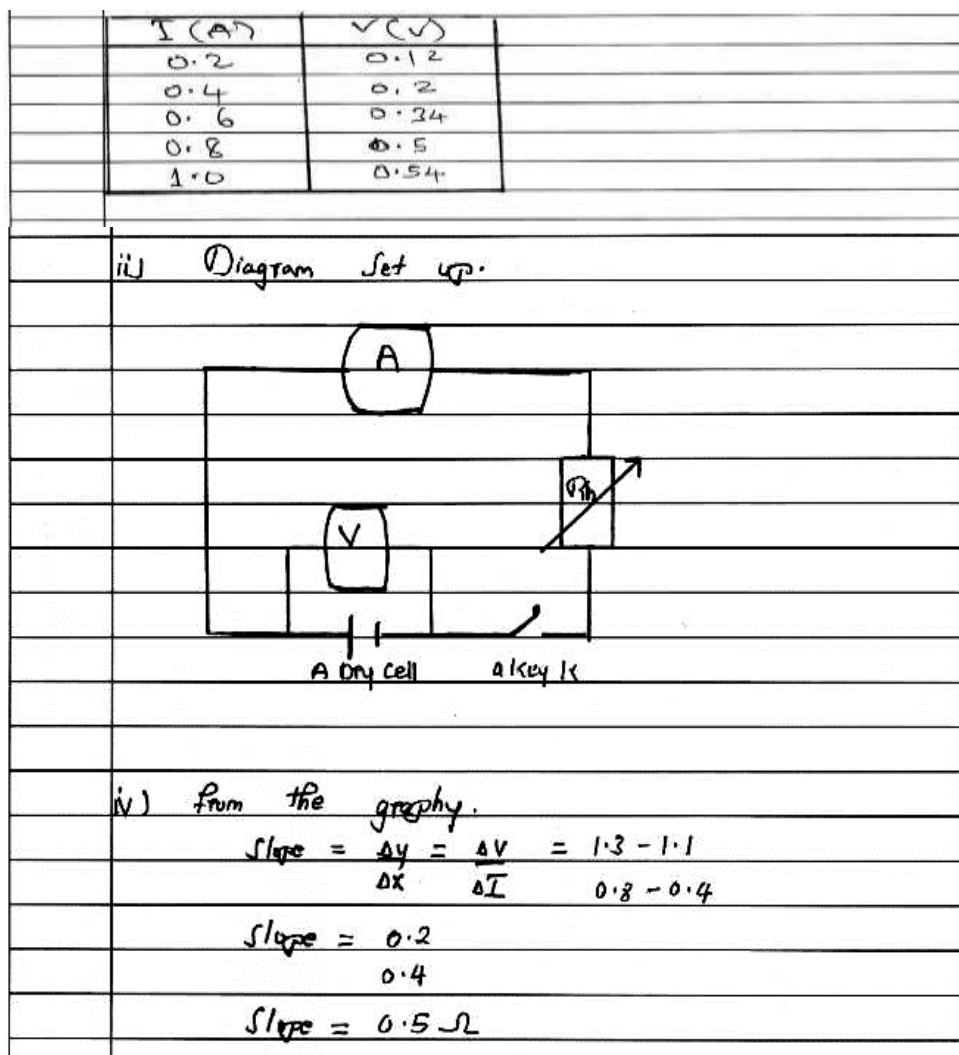 I (A) V (V)
0.2 0.12
0.4 0.2
0.6 0.34
0.8 0.5
1.0 0.54
ii) Diagram Set up.
A
Rh
V
A Dry Cell a key K
iv) from the graphy.
Slope = Δy = ΔV = 1.3 - 1.1
Δx ΔI 0.8 - 0.4
Slope = 0.2
0.4
Slope = 0.5 Ω